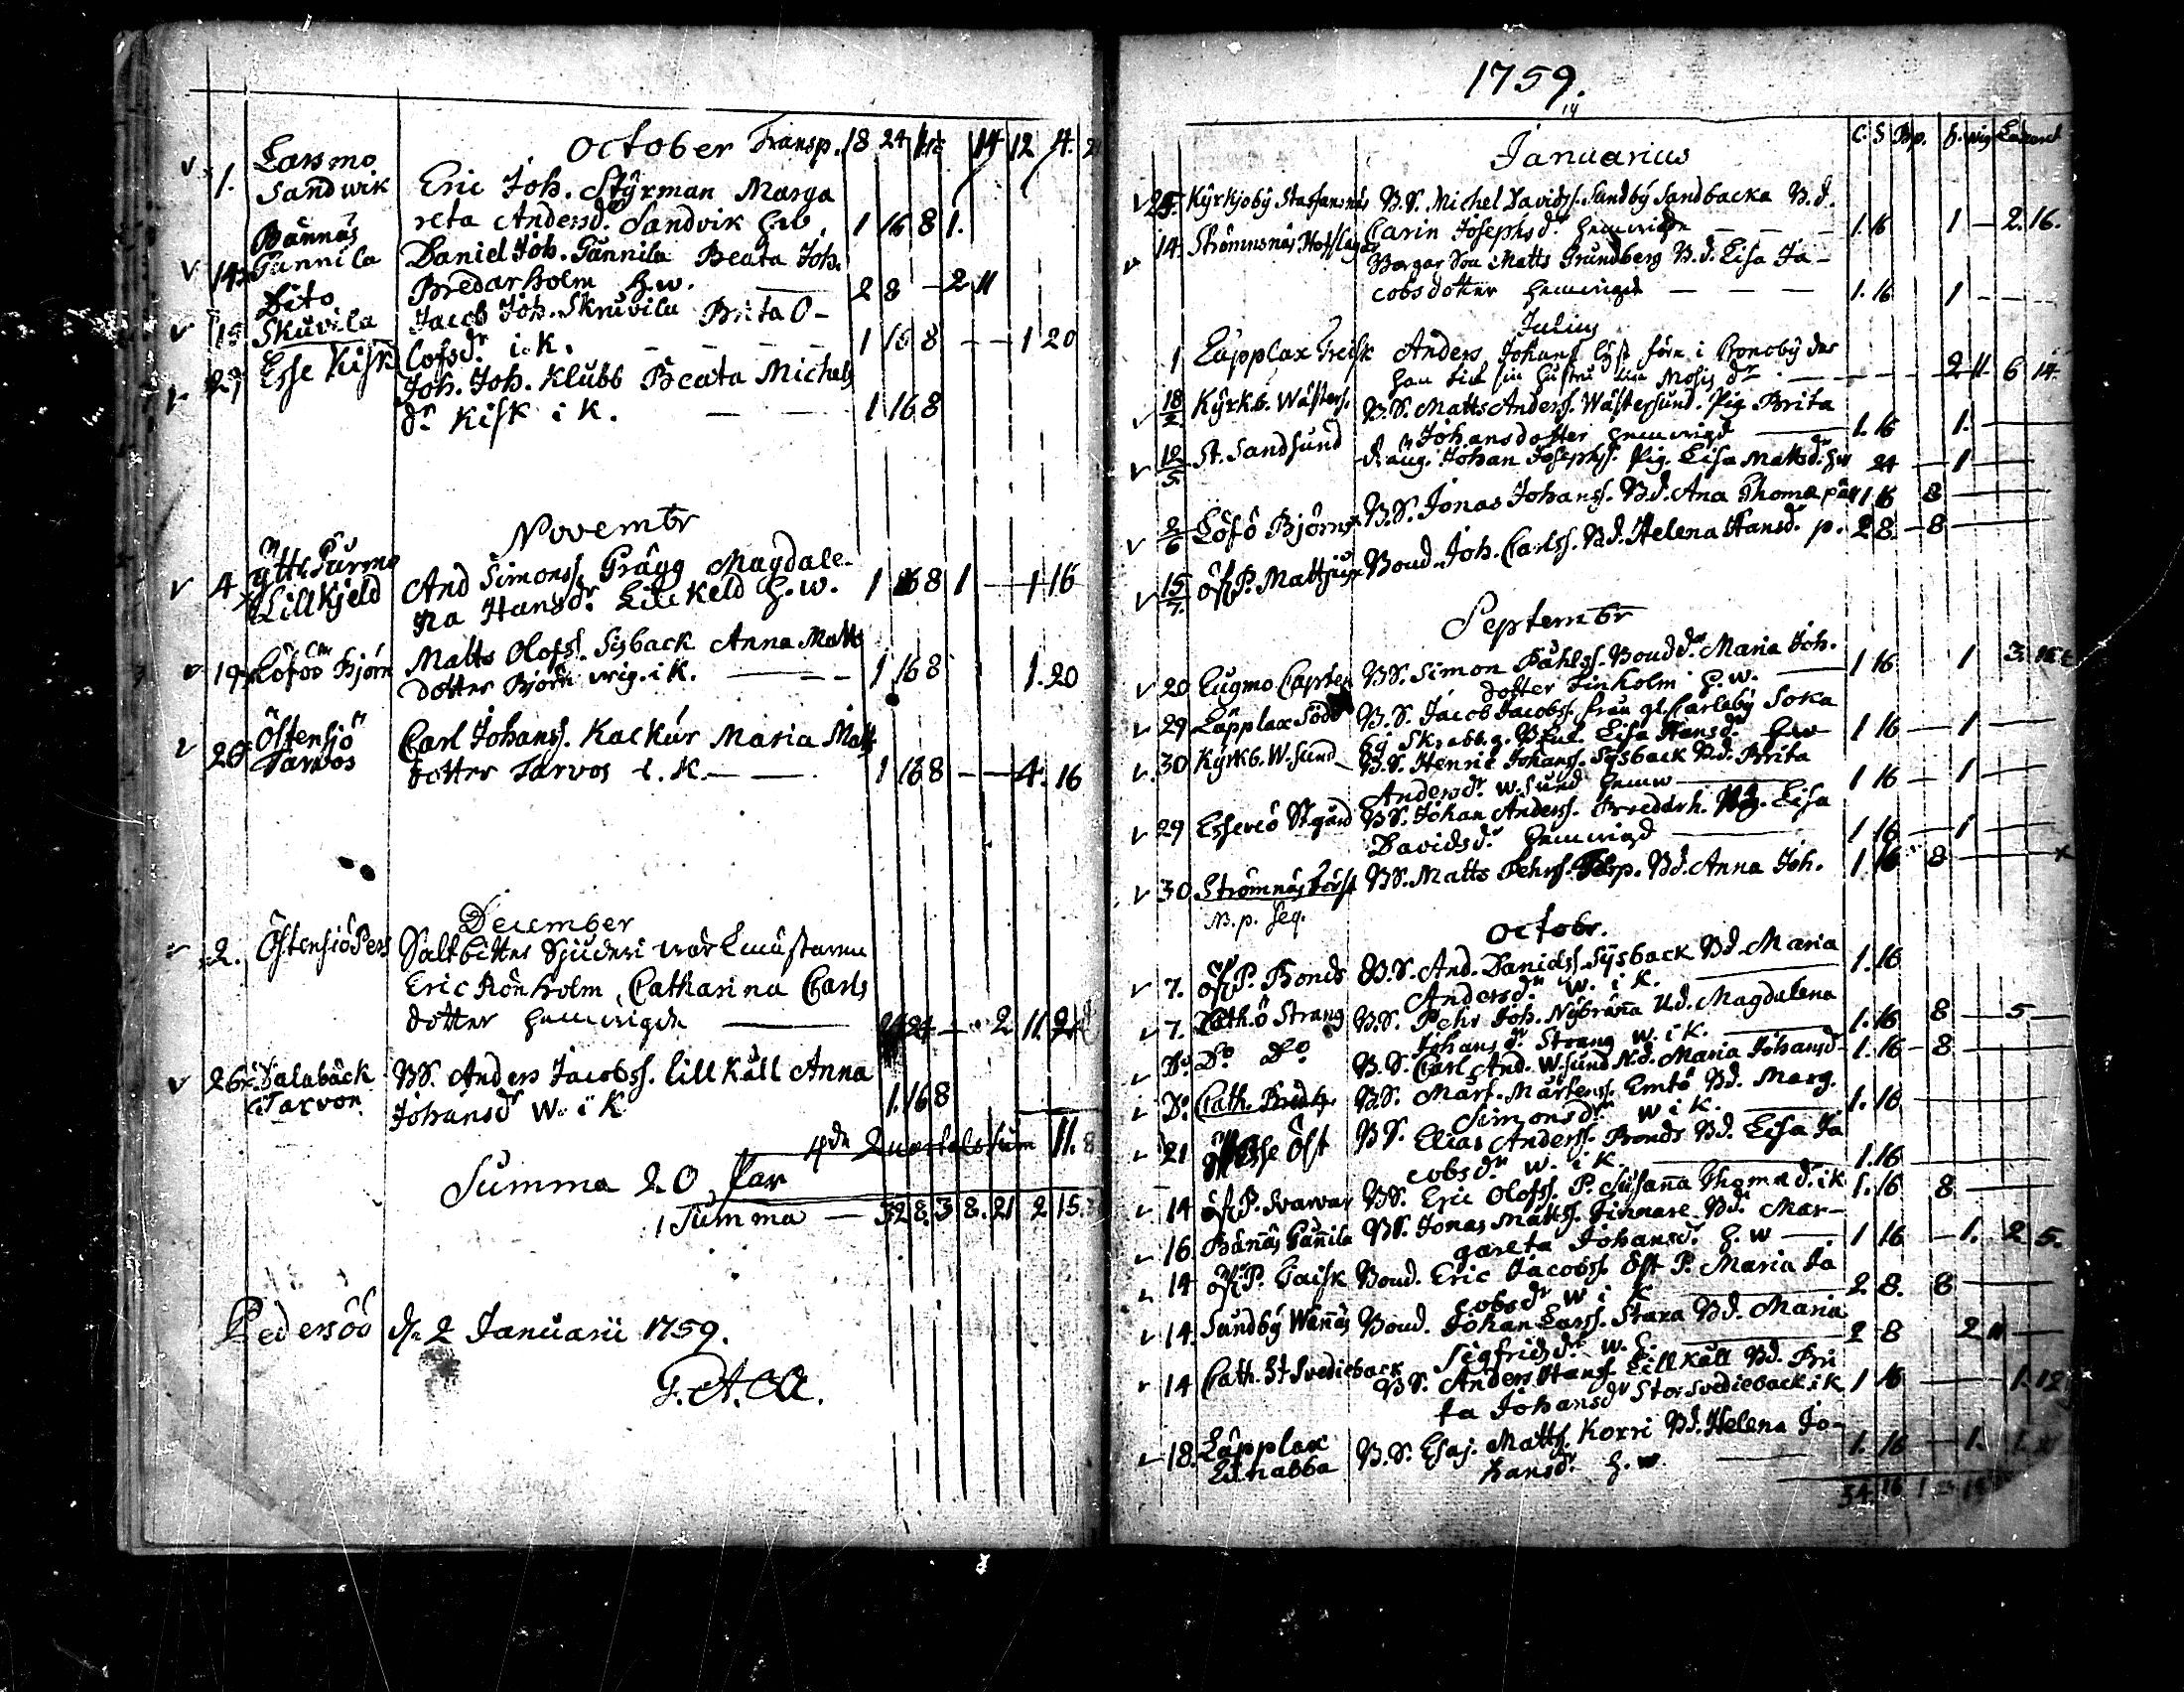 October Transp. 18 24 14 12 4.
1. Larsmo
Sandwik Eric Joh. Styrman Marga
reta Andersdr. Sandvik h.w. 1 16 8 1.
Bännäs
14 Gunnila Daniel Joh. Gunnila Beata Joh.
Bredarholm h.w. 2 8 - 2 11
Dito
15 Skuvila Jacob Joh. Skruvila Brita O-
lofsdr. i. K. - - - - 1 16 8 - - 1 20
Esse Kisk Joh. Joh. Klubb Beata Michels
dr. Kisk i K. - - 1 16 8
Novembr
4. Ytt. Purmo
Lillkjeld And Simonss. Grägg Magdale-
na Hansdr. Lillkeld h.w. 1 16 8 1 - 1 16
19 Löföö Björn Matts Olofss. Sisback Anna Matts
dotter Björn vig. i K. - - - 1 16 8 1. 20
20 Östensiö
Tarvos Carl Johanss. Kackur Maria Matts
dotter Tarvos i. K. - - 1 16 8 - - 4. 16
December
2. Östensiö Pers
Eric Rönholm, Catharina Carls
dotter hemvigde - 24 - 2 11
26 Dalabäck
Tarvon BS. Anders Jacobss. Lillkäll Anna
Johansdr w. i K 1. 16 8
4de Quartals Sum 11. 8
Summa 20 Par
Summa - 32 8. 3 8. 21 2 15.
Pedersöö d. 2 Januarii 1759.
1759.
Januarius
C. S Bp. h. vig
25. Kyrkjoby Staffansnäs B.S. Michel Davidss. Sundby Sandbacka B.d.
Carin Josephsdr. hemvigde - - - 1. 16 1 - 2. 16.
14. Strömsnäs Hofslagar Borgar Son Matts Grundberg B.d. Lisa Ja-
cobsdotter hemvigde - - - 1. 16 1 - - -
Julius
1 Läpplax Greisk Anders Johanss. i Cronoby der
- - - 2 11 6 14.
18/2 Kyrkb. Wästers. B.S. Matts Anderss. Wästersund. Pig. Brita
Johansdotter hemvigd - 1. 16 1. -
12/5 St. Sandsund dräng. Johan Josephss. Pig. Lisa Mattsdr. hw 24 - 1 -
2/6 Löfö Björns B.S. Jonas Johanss. B.d. Ana Thomæ 1 16 8 -
15/7. öst P. Bond. Joh. Carlss. B.d. Helena Hansdr. p. 2 8 - 8 -
Septembr
20 Lugmo Capten BS. Simon Påhlss. Bondd. Maria Joh.
dotter Finholm h.w. - 1 16 1 3.
29 Läpplax Söder B.S. Jacob Jacobss. från gl. Carleby Soka
by Skrabb. Lisa Hansdr. hw 1 16 - 1 -
30 Kyrkb. W. Sund B.S. Henric Johanss. Sysback B.d. Brita
Andersdr. W. Sund hemw - 1 16 - 1 -
29 Esseviö Stgård B.S. Johan Anderss. Breddarh. Pig. Lisa
Davidsdr. hemvigd - 1 16 - 1 -
30 Strömnäs Först BS. Matts Pehrss. Torp. Bd. Anna Joh. 1. 16 8 - x
N.p. seq.
Octobr.
7. öst P. Bonds B.S. And. Danielss. Sysback Bd. Maria
Andersdr. w. i K. - 1. 16
7. Cathö Strang B.S. Pehr Joh. Nybränna Nd. Magdalena
Johansdr. Strang w. i K. - 1. 16 8 - 5 -
Do. Do Do B.S. Carl And. W. Sund N.d. Maria Johansd 1. 16 - 8 -
Do. Cath. BS. Mårt. Mårtenss. Emtö Bd. Marg.
Simonsdr. w i K. - 1. 16 -
21 Esse öst BS. Elias Anderss. Bonds Bd. Lisa Ja
cobsdr. w. i K. - 1. 16 -
14 öst P. Svarvar BS. Eric Olofss. P. Susanna Thomæ d. i K 1. 16 8 -
16. Bännäs Gunnila BS. Jonas Mattss. Finnare Bd. Mar-
gareta Johansdr. h. w - 1 16 - 1. 2 5.
14 öst P. Gaisk Bond. Eric Jacobss. Öst P. Maria Ja
cobsdr w i K - 2 8. 8 -
14. Sundby Wänäs Bond. Johan Larss. Stara Bd. Maria
Sigfridsdr. w. h. - 2 8 2 11 -
14 Cath. St Svedieback BS. Anders Hanss. Lillkäll Bd. Bri
ta Johansdr Stor Svedieback i K 1 16 - - 1. 12
18. Läpplax
Ednabba B.S. Esaj. Mattss. Korri Bd. Helena Jo-
hansdr. h. w - - 1. 16 - 1.
34. 16